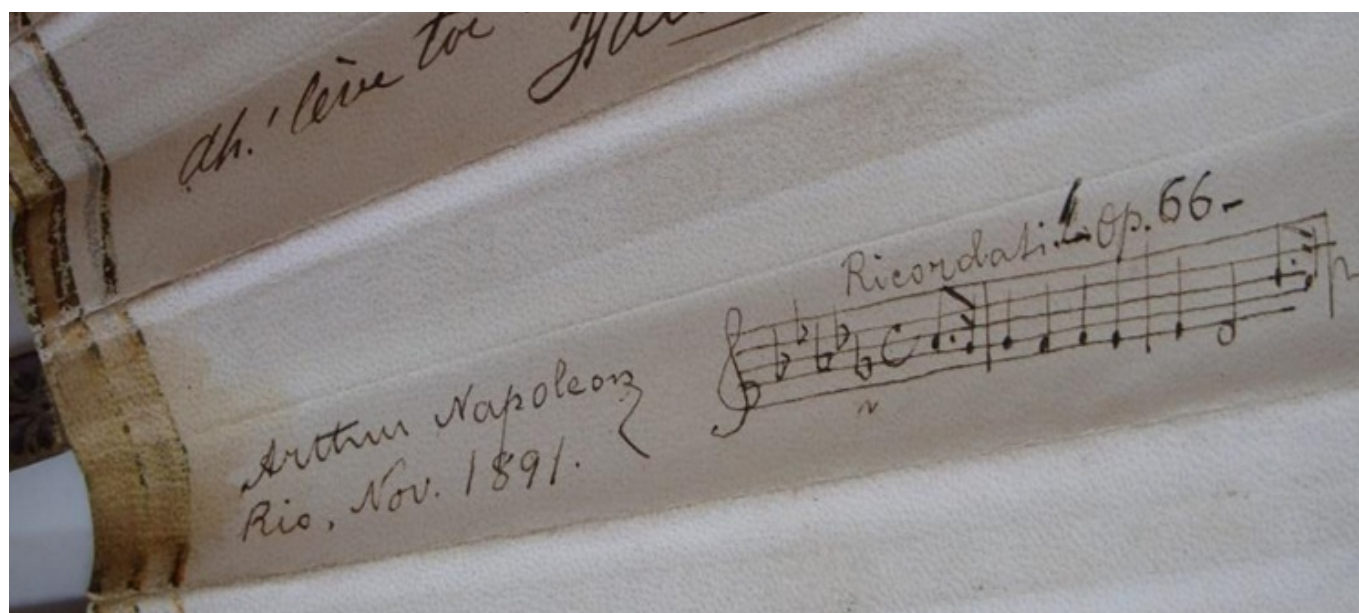 Ah! lève toi
Ricordati! Op. 66-
Arthur Napoleon
Rio, Nov. 1891.